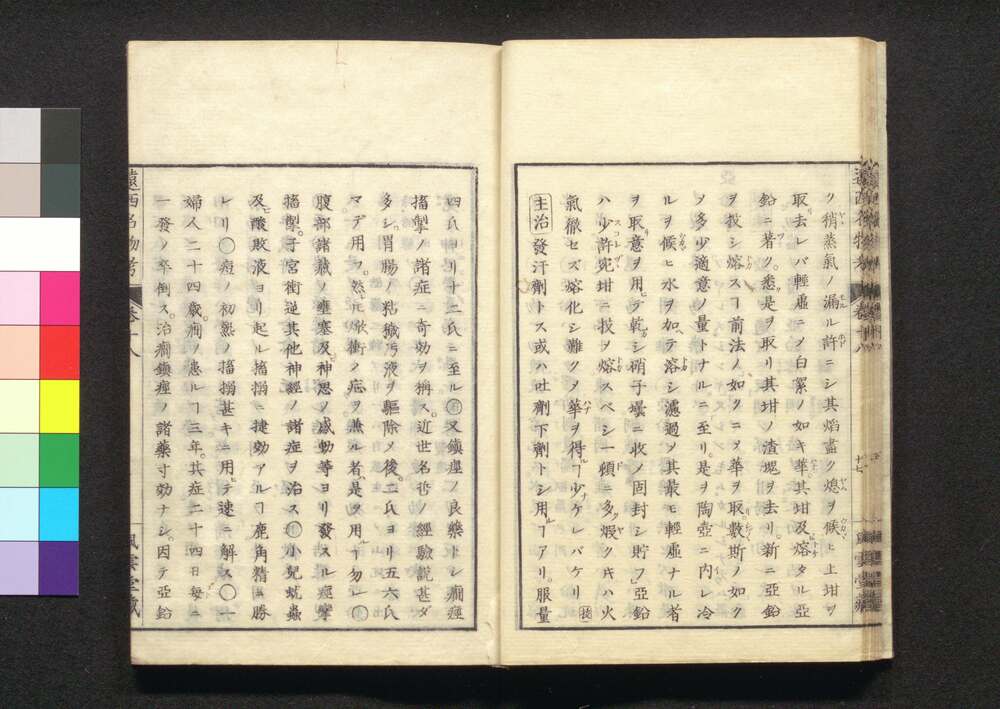 ク稍蒸氣ノ漏ル許ニシ其焰盡ク熄ヲ候ヒ上坩ヲ
取去レバ輕虚ニ〆白絮ノ如キ華其坩及熔タル亞
鉛ニ著ク。悉是ヲ取リ其坩ノ渣塊ヲ去リ。新ニ亞鉛
ヲ投シ熔スヿ前法ノ如クニ〆華ヲ取數斯ノ如ク
〆多少適意ノ量トナルニ至リ。是ヲ陶壺ニ内レ冷
ルヲ候ヒ水ヲ加テ溶シ濾過〆其最モ輕虚ナル者
ヲ取。意ヲ用テ乾シ硝子壜ニ收メ固封シ貯フ。亞鉛
ハ少許宛坩ニ投ケ熔スベシ一頓ニ多煅クキハ火
氣徹セズ熔化シ難ク〆華ヲ得ヿ少ナケレバナリ
主治 發汗劑トス或ハ吐劑下劑トシ用ルヿアリ。服量
四氏ヨリ十二氏ニ至ル 又鎮痙ノ良藥トシ癇痙
搐掣ノ諸症ニ奇効ヲ稱ス。近世名哲ノ經驗説甚ダ
多シ。胃腸ノ粘液ヲ驅除〆後。二氏ヨリ五六氏
マデ用フ。然𪜈ノ症ヲ兼ル者是ヲ用ルヿ勿レ
腹部諸藏ノ壅塞及神思ノ感動等ヨリ發スル痙攣
搐掣。子宮衝逆其他神經ノ諸症ヲ治ス 小兒蚘蟲
及酸敗液ヨリ起ル搐搦ニ捷効アルヿ鹿角精ニ勝
レリ〇痘ノ初熱ノ搐搦甚キニ用テ速ニ解ス〇一
婦人二十四歲。癇ヲ患ルヿ三年。其症二十四日每ニ
一發〆卒倒ス。治癇鎮痙ノ諸藥寸効ナシ。因テ亞鉛
遠西名物考
卷十八
十七
風雲堂藏